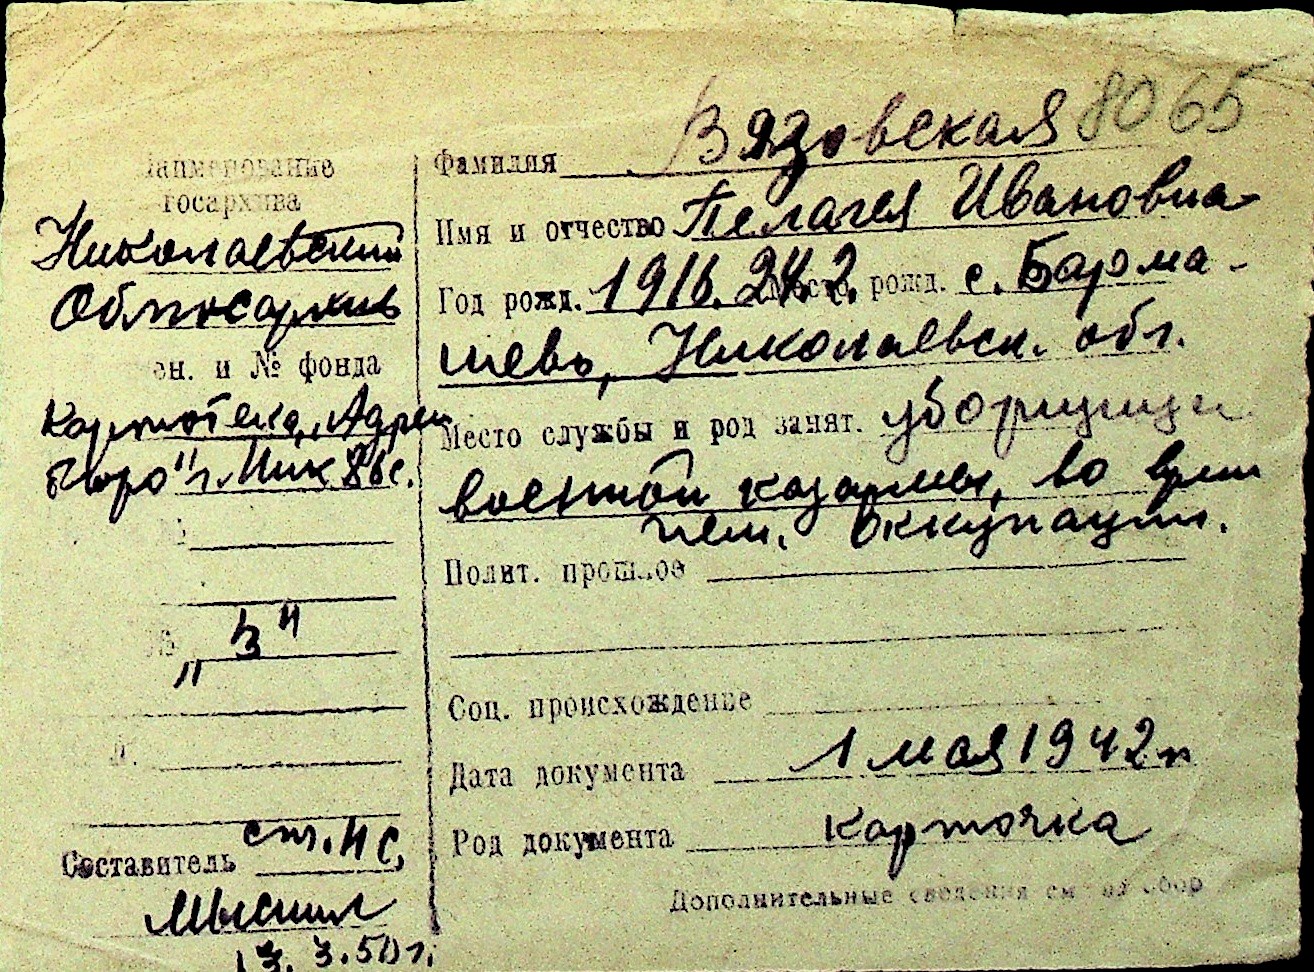 8065
Наименование
госархива
Николаевский
Облгосархив
ен. и № фонда
Картотека „Адрес
бюро" г. Ник
№
№ „3"
Составитель ст. н с.
3.50 г.
Фамилия Вязовская
Имя и отчество Пелагея Ивановна
Год рожд. 1916. 24. 2. Место рожд. с. Барма-
шево, Николаевск. обл.
Место службы и род занят. уборщица
военной казармы, во врем
нем. оккупации.
Полит. прошлое
Соц. происхождение
Дата документа 1 мая 1942 г
Род документа карточка
Дополнительные сведения см на обор